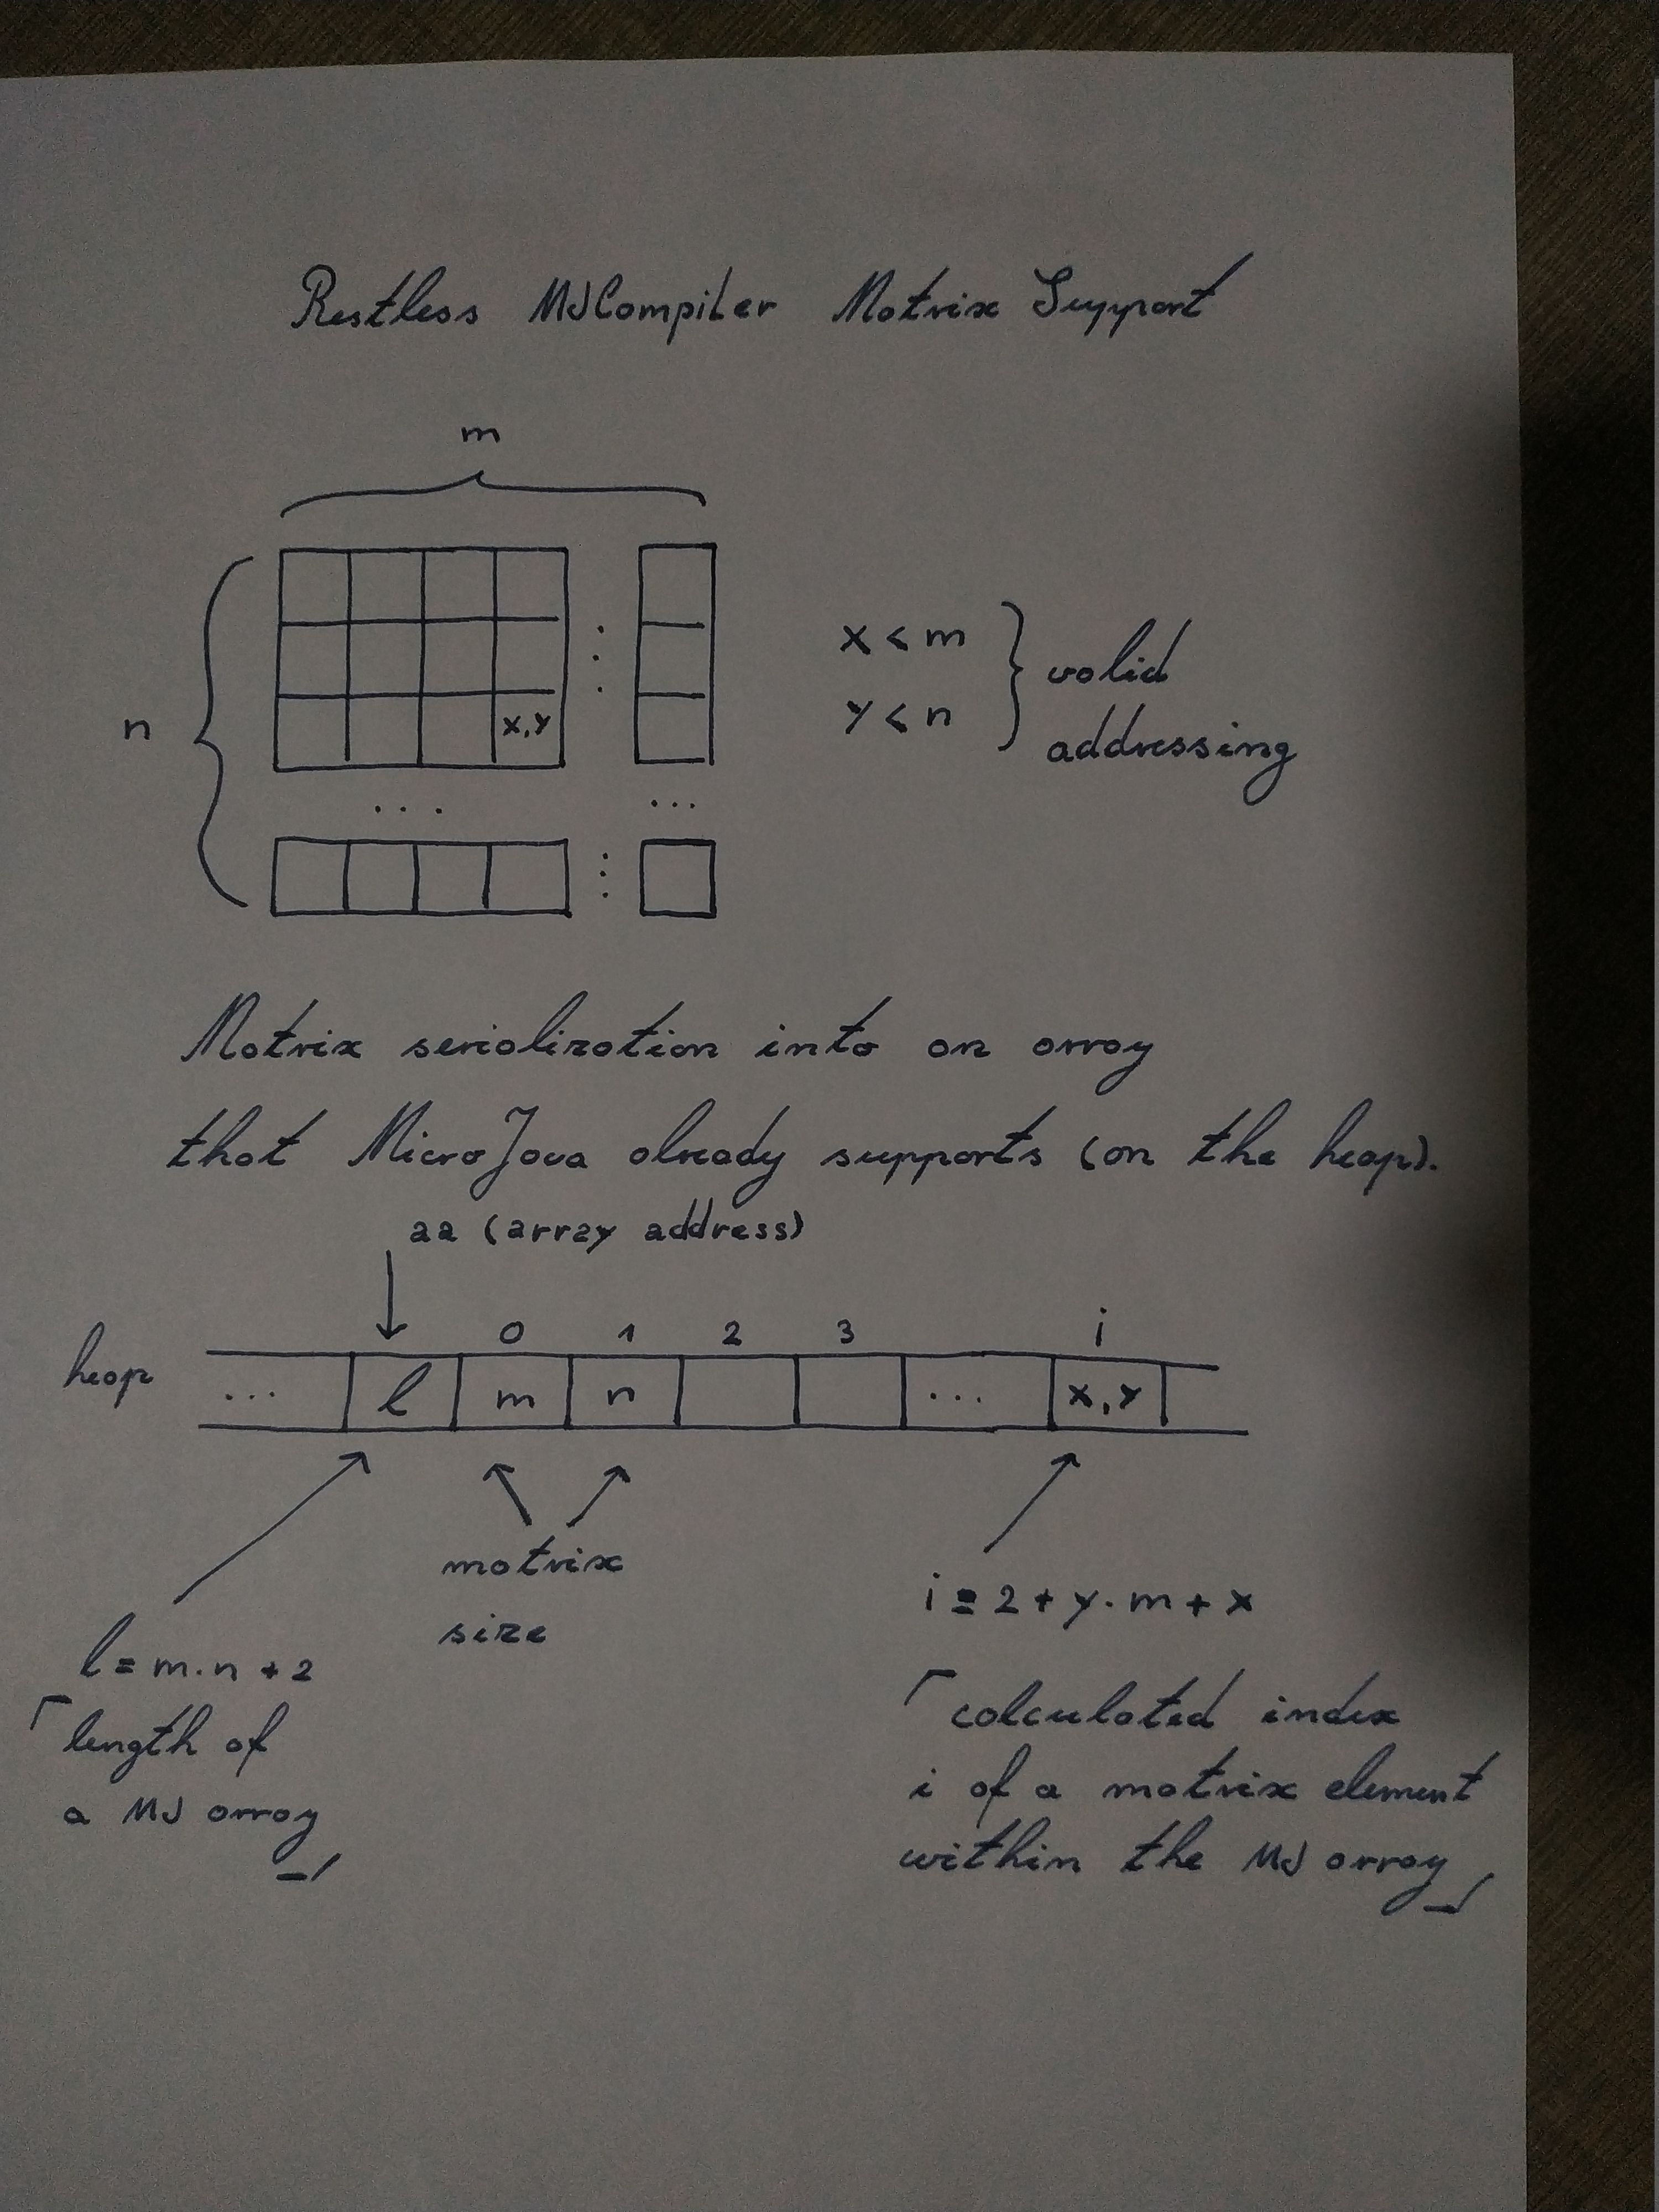 Restless MJCompiler Matrix Support
m
n
x,y
x < m
y < n
valid
addressing
...
...
Matrix serialization into an array
that MicroJava already supports (on the heap).
aa (array address)
0 1 2 3 i
heap ... l m n ... x,y
matrix
size
i = 2 + y · m + x
l = m · n + 2
length of
a MJ array
calculated index
i of a matrix element
within the MJ array